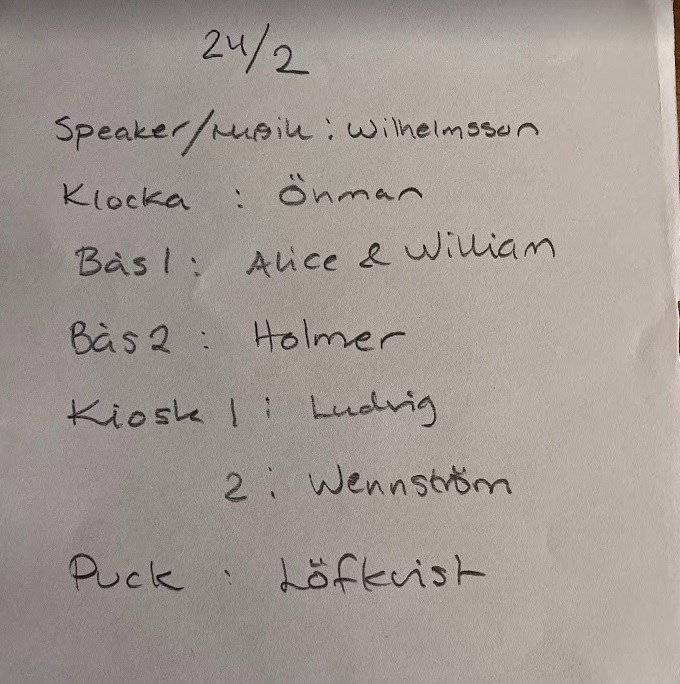 24/2
Speaker/Musik : Wilhelmsson
Klocka : Öhman
Bås 1 : Alice & William
Bås 2 : Holmer
Kiosk 1 : Ludvig
2 : Wennström
Puck : Löfkvist